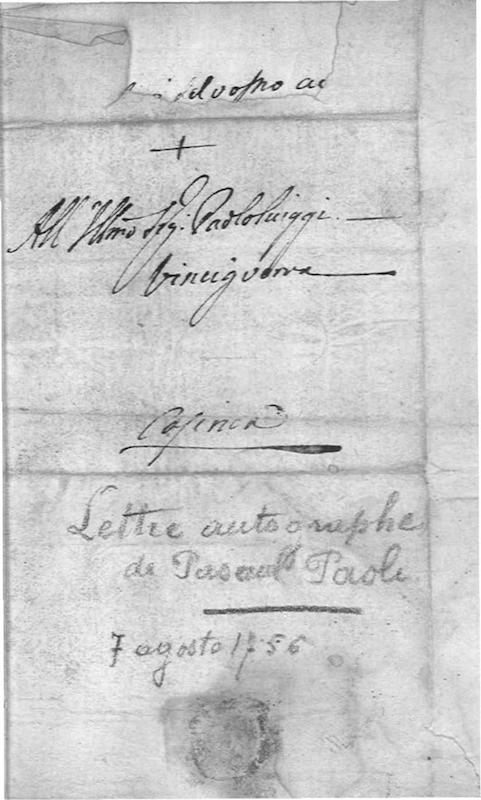 +
All'Illmo Sig: Paololuiggi
Vinciguerra
Casinca
Lettre autographe
de Pascal Paoli
7 agosto 1756